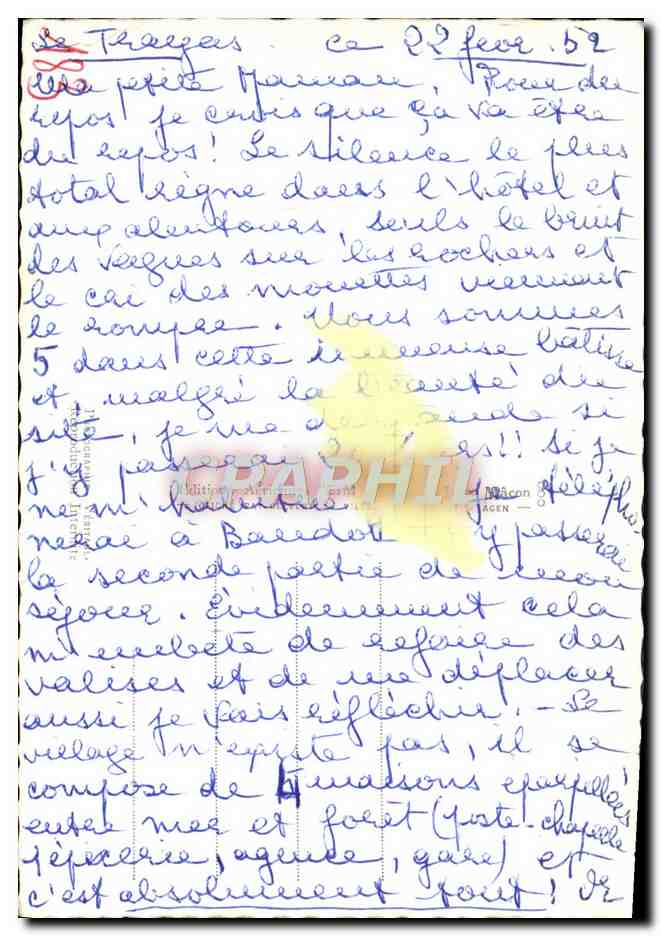 Le Trayas. ce 22 fevr. 52
Ma petite Maman, Pour du
repos je crois que ça va être
du repos! Le silence le plus
total règne dans l'hôtel et
aux alentours, seuls le bruit
des vagues sur les rochers et
le cri des mouettes viennent
le rompre. Nous sommes
5 dans cette immense bâtisse
et malgré la beauté du
site, je me demande si
j'y passerai !! si je
ne m' télépho-
nerai à Bandol y passerai
la seconde partie de mon
séjour. Évidemment cela
m'embete de refaire des
valises et de me déplacer
aussi je vais réfléchir. - Le
village n'existe pas, il se
compose de 4 maisons éparpillées
entre mer et forêt (poste-chapelle
épicerie, agence, gare) et
c'est absolument tout! Or
PAPHIL
Mâcon
AGEN